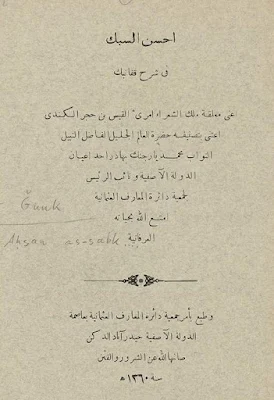 احسن السبك
فى شرح قفانبك
على معلقة ملك الشعراء امرئ القيس بن حجر الكندى
اعتنى بتصنيفه حضرة العالم الجليل الفاضل النبيل
النواب محمد يار جنك بهادر احد اعيان
الدولة الآصفية ونائب الرئيس
لجمعية دائرة المعارف العثمانية
امتع الله بحياته
العرفانية
Ahsan as-sabk
وطبع بأمر جمعية دائرة المعارف العثمانية بعاصمة
الدولة الآصفية حيدرآباد الدكن
صانها الله عن الشرور والفتن
سنة ١٣٦٠ ھ